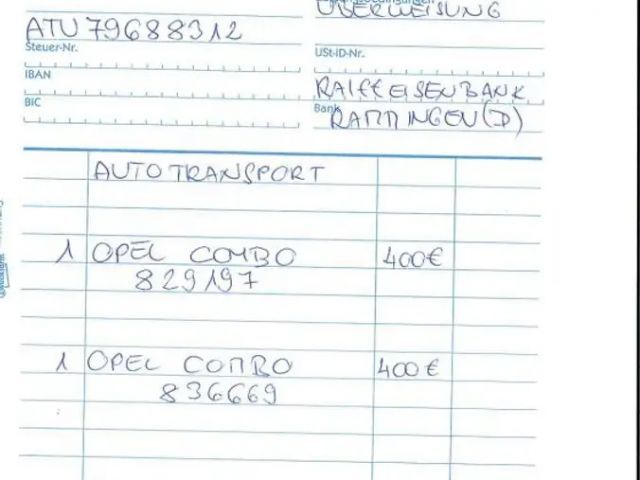 ÜBERWEISUNG
ATU79688312
Steuer-Nr.
USt-ID-Nr.
IBAN
RAIFFEISENBANK
BIC
Bank
RAMMINGEN(D)
AUTOTRANSPORT
1 OPEL COMBO 400€
829197
1 OPEL COMBO 400€
836669